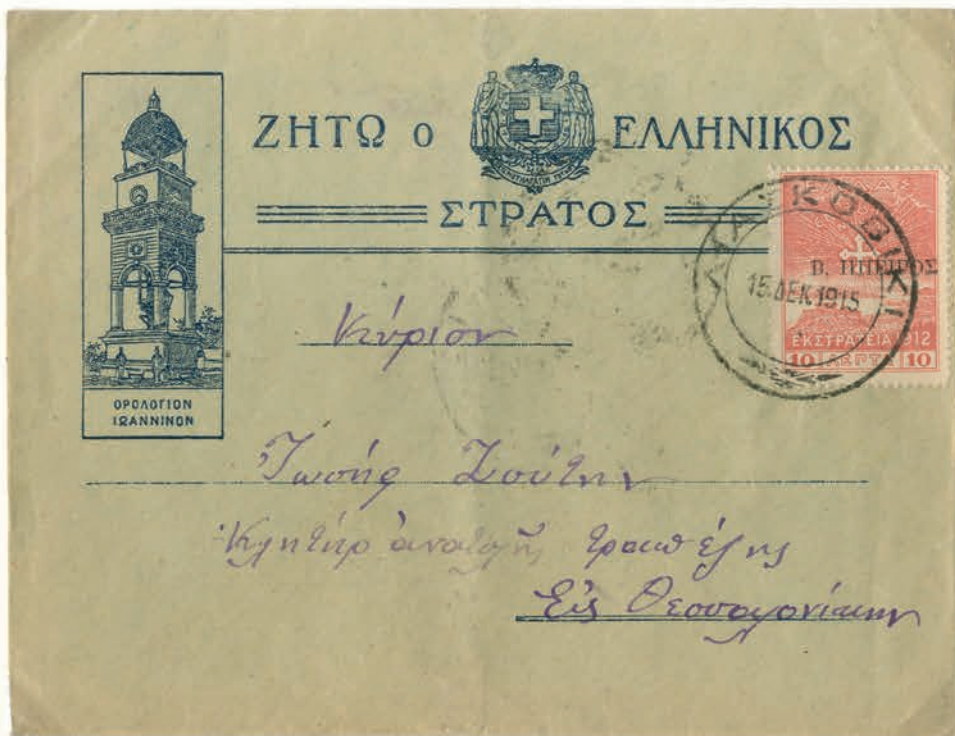 ΖΗΤΩ ο ΕΛΛΗΝΙΚΟΣ
ΣΤΡΑΤΟΣ
ΟΡΟΛΟΓΙΟΝ
ΙΩΑΝΝΙΝΩΝ
ΛΙΑΣΚΟΒΙΚΙ
15 ΔΕΚ 1915
Β. ΗΠΕΙΡΟΣ
ΕΚΣΤΡΑΤΕΙΑ 1912
10 ΛΕΠΤΑ 10
Κύριον
Ἰωσήφ
Κλητήρ ἀνατολῆς τραπέζης
Εἰς Θεσσαλονίκην